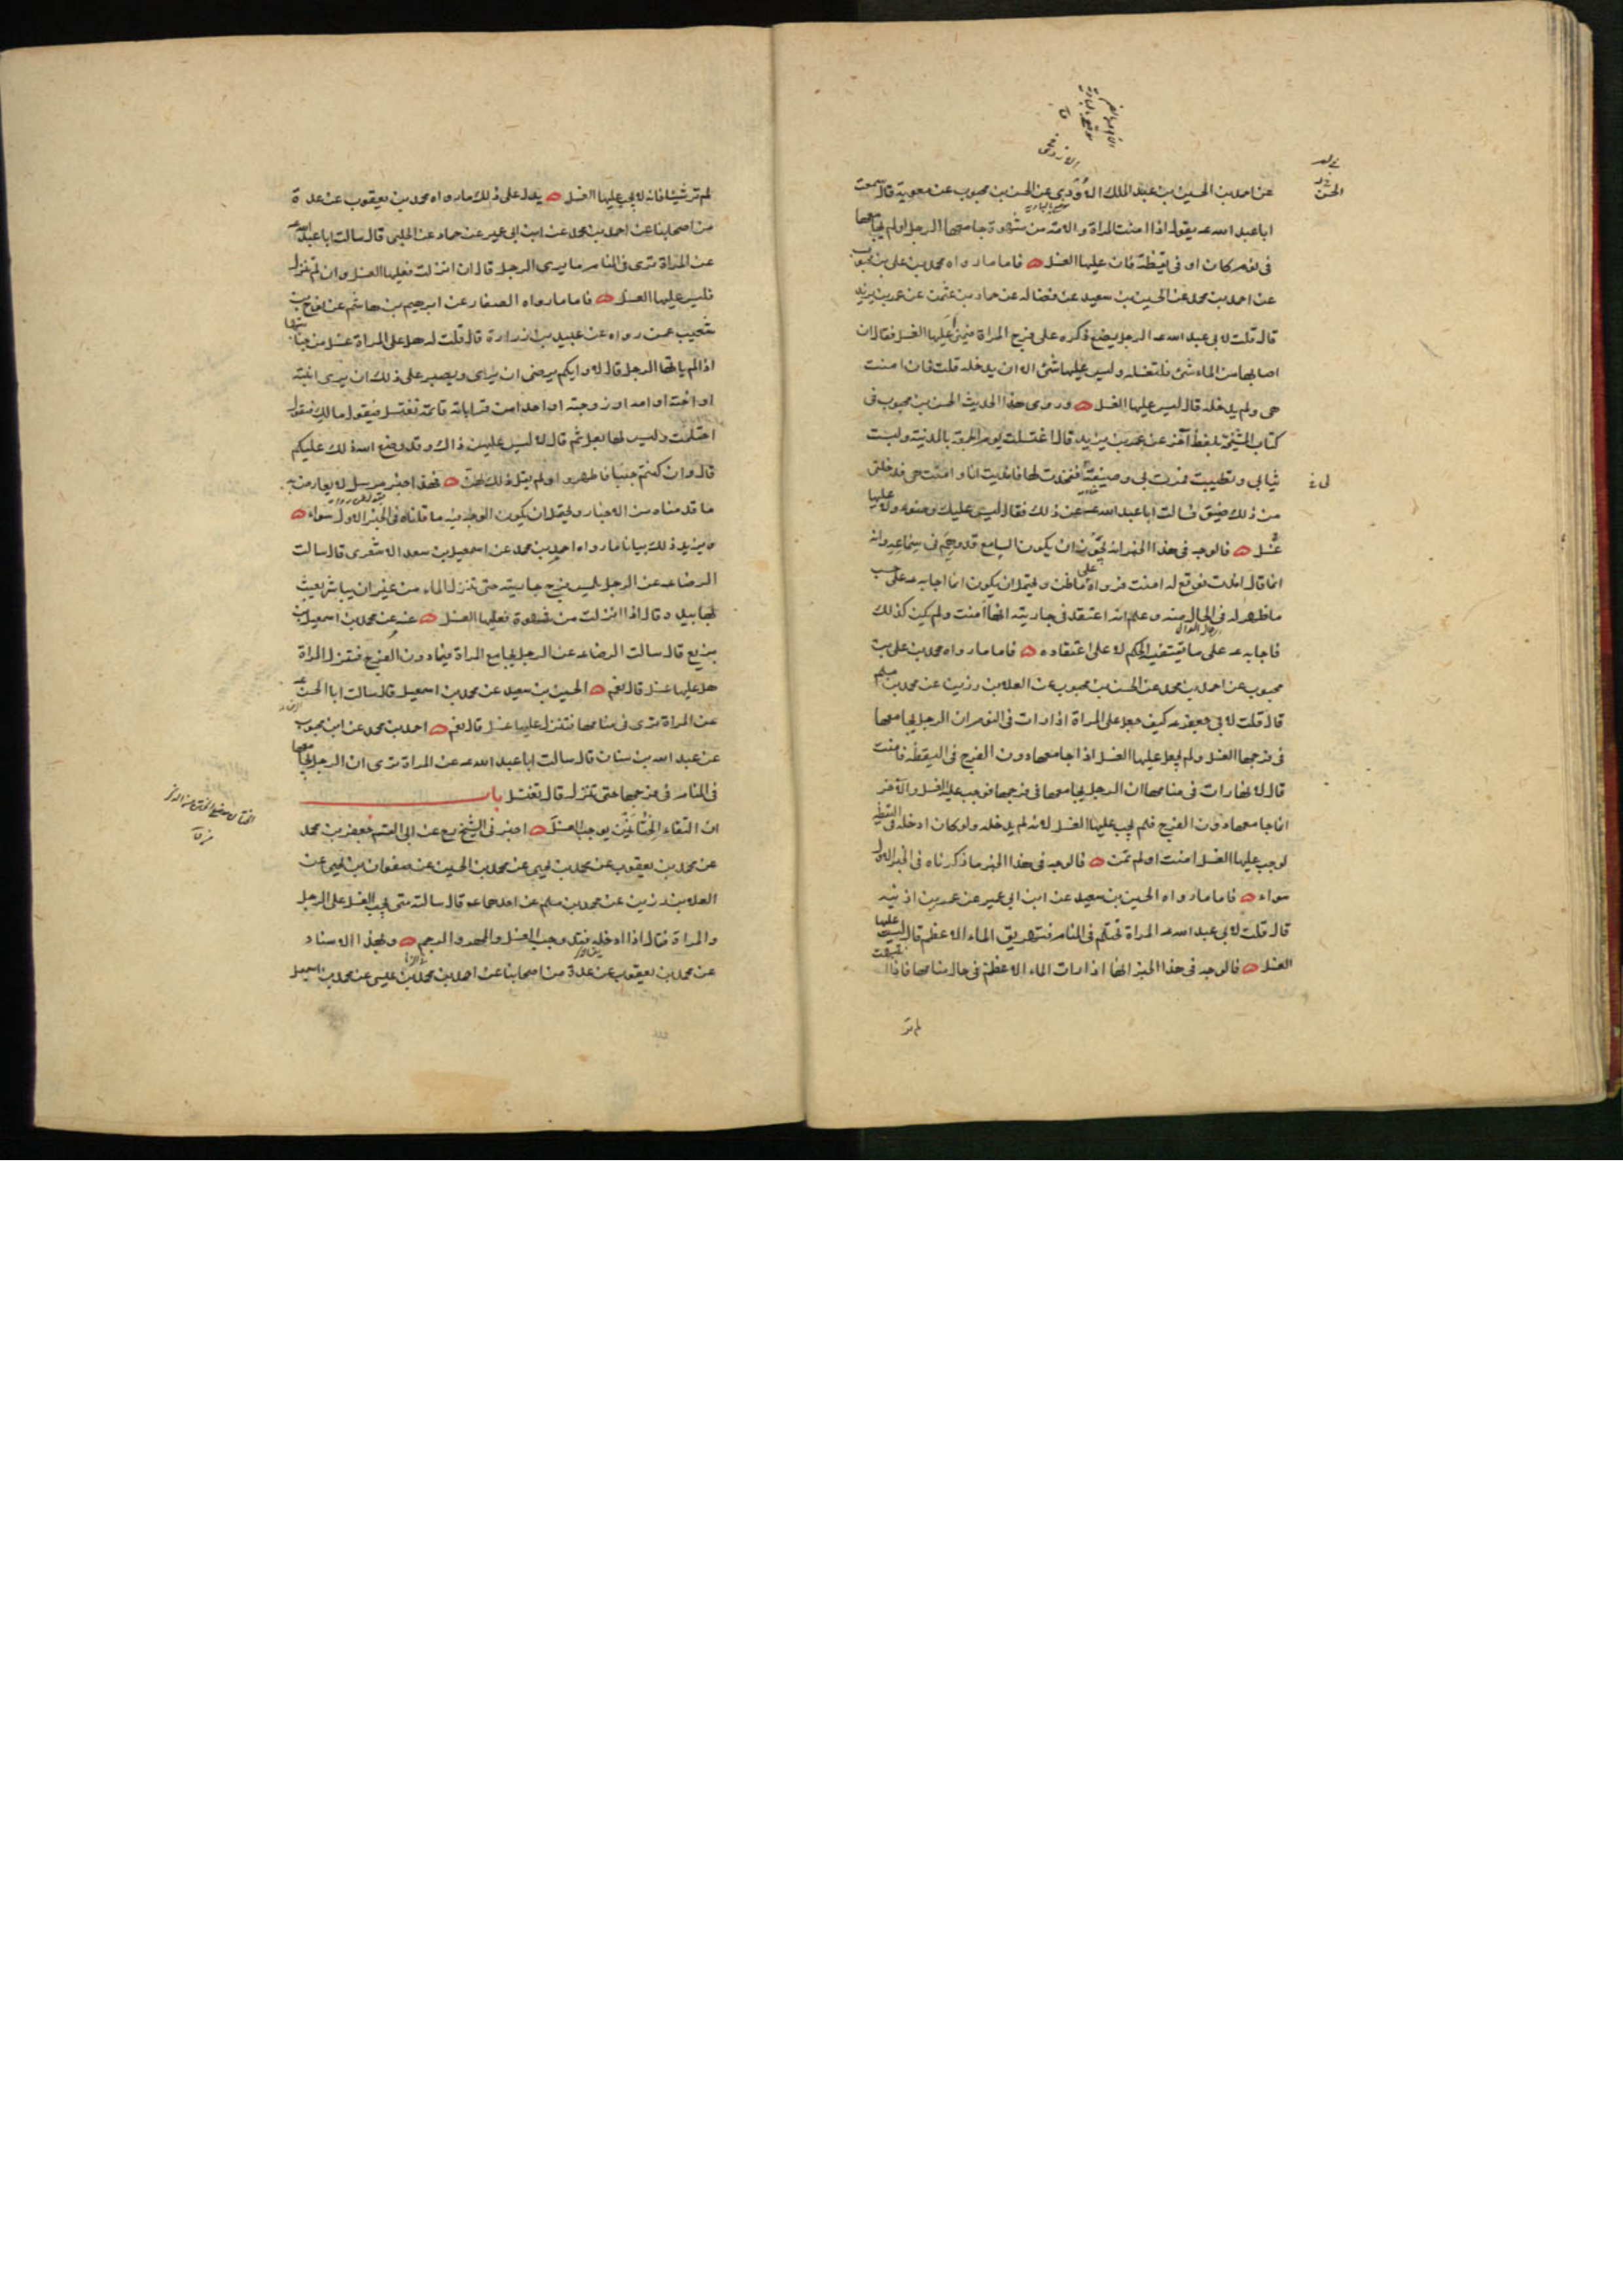 عن احمد بن الحسين بن عبد الملك الاودي عن الحسن بن محبوب عن معوية قال سمعت
ابا عبد الله عه يقول اذا امنت المراة والامة من شهوة جامعها الرجل او لم يجامعها
فى نوم كان او فى يقظة فان عليها الغسل فاما ما رواه محمد بن على بن محبوب
عن احمد بن محمد عن الحسين بن سعيد عن فضالة عن حماد بن عثمن عن عمر بن يزيد
قال قلت لابى عبد الله عه الرجل يضع ذكره على فرج المراة فيمنى اعليها الغسل فقال ان
اصابها من الماء شئ فلتغسله وليس عليها شئ الا ان يدخله قلت فان امنت
هى ولم يدخله قال ليس عليها الغسل وروى هذا الحديث الحسن بن محبوب فى
كتاب المشيخة بلفظ آخر عن عمر بن يزيد قال اغتسلت يوم الجمعة بالمدينة ولبست
ثيابى وتطيبت فمرت بى وصيفة ففخذت لها فامذيت انا وامنت هى فدخلنى
من ذلك ضيق فسالت ابا عبد الله عه عن ذلك فقال ليس عليك وضوء ولا عليها
غسل فالوجه فى هذا الخبر انه يجوز ان يكون السامع قد وهم فى سماعه وانه
انما قال امذت فوقع له امنت فرواه على ما ظن ويحتمل ان يكون انما اجابه عه على حسب
ما ظهر له فى الحال منه وعلم انه اعتقد فى جاريته انها امنت ولم يكن كذلك
فاجابه عه على ما يقتضيه الحكم لا على اعتقاده فاما ما رواه محمد بن على بن
محبوب عن احمد بن محمد عن الحسن بن محبوب عن العلا بن رزين عن محمد بن مسلم
قال قلت لابى جعفر عه كيف جعل على المراة اذا رات فى النوم ان الرجل يجامعها
فى فرجها الغسل ولم يجعل عليها الغسل اذا جامعها دون الفرج فى اليقظة فامنت
قال لانها رات فى منامها ان الرجل يجامعها فى فرجها فوجب عليها الغسل والآخر
انما جامعها دون الفرج فلم يجب عليها الغسل لانه لم يدخله ولو كان ادخله فى اليقظة
لوجب عليها الغسل امنت او لم تمن فالوجه فى هذا الخبر ما ذكرناه فى الخبر الاول
سواء فاما ما رواه الحسين بن سعيد عن ابن ابى عمير عن عمر بن اذينه
قال قلت لابى عبد الله عه المراة تحتلم فى المنام فتهريق الماء الاعظم قال ليس عليها
الغسل فالوجه فى هذا الخبر انها اذا رات الماء الاعظم فى حال منامها فاذا انتبهت
لم تر
لم تر شيئا فانه لا يجب عليها الغسل يدل على ذلك ما رواه محمد بن يعقوب عن عدة
من اصحابنا عن احمد بن محمد عن ابن ابى عمير عن حماد عن الحلبى قال سالت ابا عبد الله عه
عن المراة ترى فى المنام ما يرى الرجل قال ان انزلت فعليها الغسل وان لم تنزل
فليس عليها الغسل فاما ما رواه الصفار عن ابرهيم بن هاشم عن نوح بن
شعيب عمن رواه عن عبيد بن زرارة قال قلت له هل على المراة غسل من جنابتها
اذا لم ياتها الرجل قال لا وايكم يرضى ان يرى ويصبر على ذلك ان يرى ابنته
او اخته او امه او زوجته او احدا من قراباته قائمة تغتسل فيقول مالك فتقول
احتلمت وليس لها بعل ثم قال لا ليس عليهن ذاك وقد وضع الله ذلك عليكم
قال وان كنتم جنبا فاطهروا ولم يقل ذلك لهن فهذا خبر مرسل لا يعارض به
ما قدمناه من الاخبار ويحتمل ان يكون الوجه فيه ما قلناه فى الخبر الاول سواء
ويزيد ذلك بيانا ما رواه احمد بن محمد عن اسمعيل بن سعد الاشعرى قال سالت
الرضا عه عن الرجل يلمس فرج جاريته حتى تنزل الماء من غير ان يباشر يعبث
بها بيده قال اذا انزلت من شهوة فعليها الغسل عنه عن محمد بن اسمعيل بن
بزيع قال سالت الرضا عه عن الرجل يجامع المراة فيما دون الفرج فتنزل المراة
هل عليها غسل قال نعم الحسين بن سعيد عن محمد بن اسمعيل قال سالت ابا الحسن عه
عن المراة ترى فى منامها فتنزل عليها غسل قال نعم احمد بن محمد عن ابن محبوب
عن عبد الله بن سنان قال سالت ابا عبد الله عه عن المراة ترى ان الرجل يجامعها
فى المنام فى فرجها حتى تنزل قال تغتسل باب
ان التقاء الختانين يوجب الغسل اخبرنى الشيخ ره عن ابى القسم جعفر بن محمد
عن محمد بن يعقوب عن محمد بن يحيى عن محمد بن الحسين عن صفوان بن يحيى عن
العلا بن رزين عن محمد بن مسلم عن احدهما عه قال سالته متى يجب الغسل على الرجل
والمراة فقال اذا ادخله فقد وجب الغسل والمهر والرجم وبهذا الاسناد
عن محمد بن يعقوب عن عدة من اصحابنا عن احمد بن محمد بن عيسى عن محمد بن اسمعيل